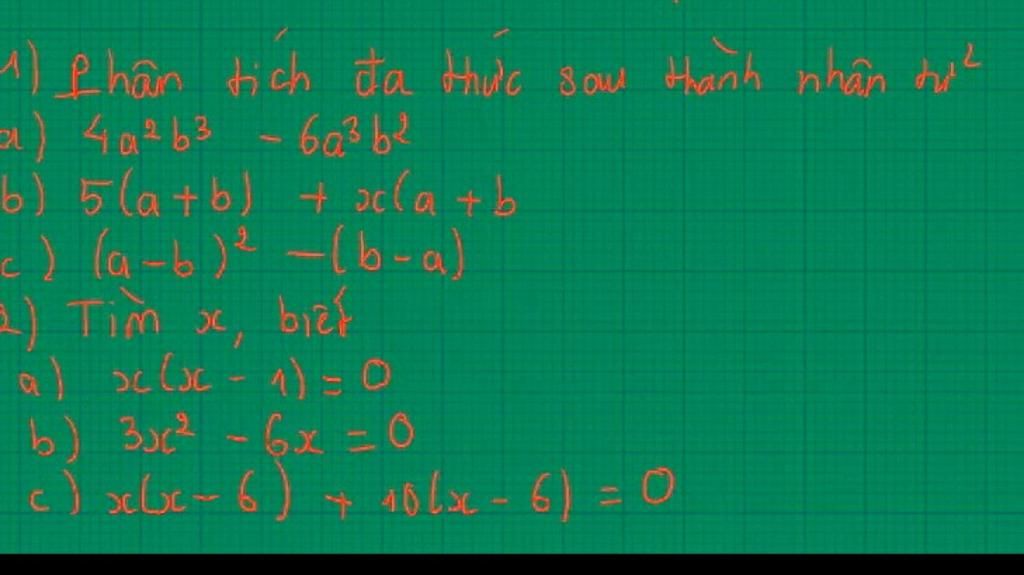 1) Phân tích đa thức sau thành nhân tử
a) 4a²b³ - 6a³b²
b) 5(a + b) + x(a + b
c) (a - b)² - (b - a)
2) Tìm x, biết
a) x(x - 1) = 0
b) 3x² - 6x = 0
c) x(x - 6) + 10(x - 6) = 0